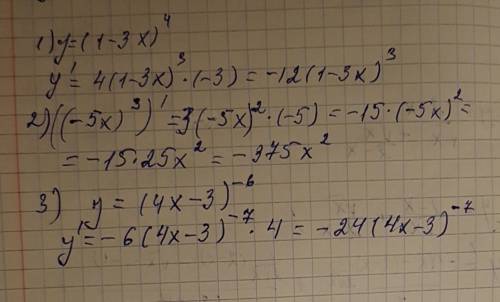 1) y=(1-3x)⁴
y' = 4(1-3x)³·(-3) = -12(1-3x)³
2) ((-5x)³)' = 3(-5x)²·(-5) = -15·(-5x)² =
= -15·25x² = -375x²
3) y = (4x-3)⁻⁶
y' = -6(4x-3)⁻⁷·4 = -24(4x-3)⁻⁷